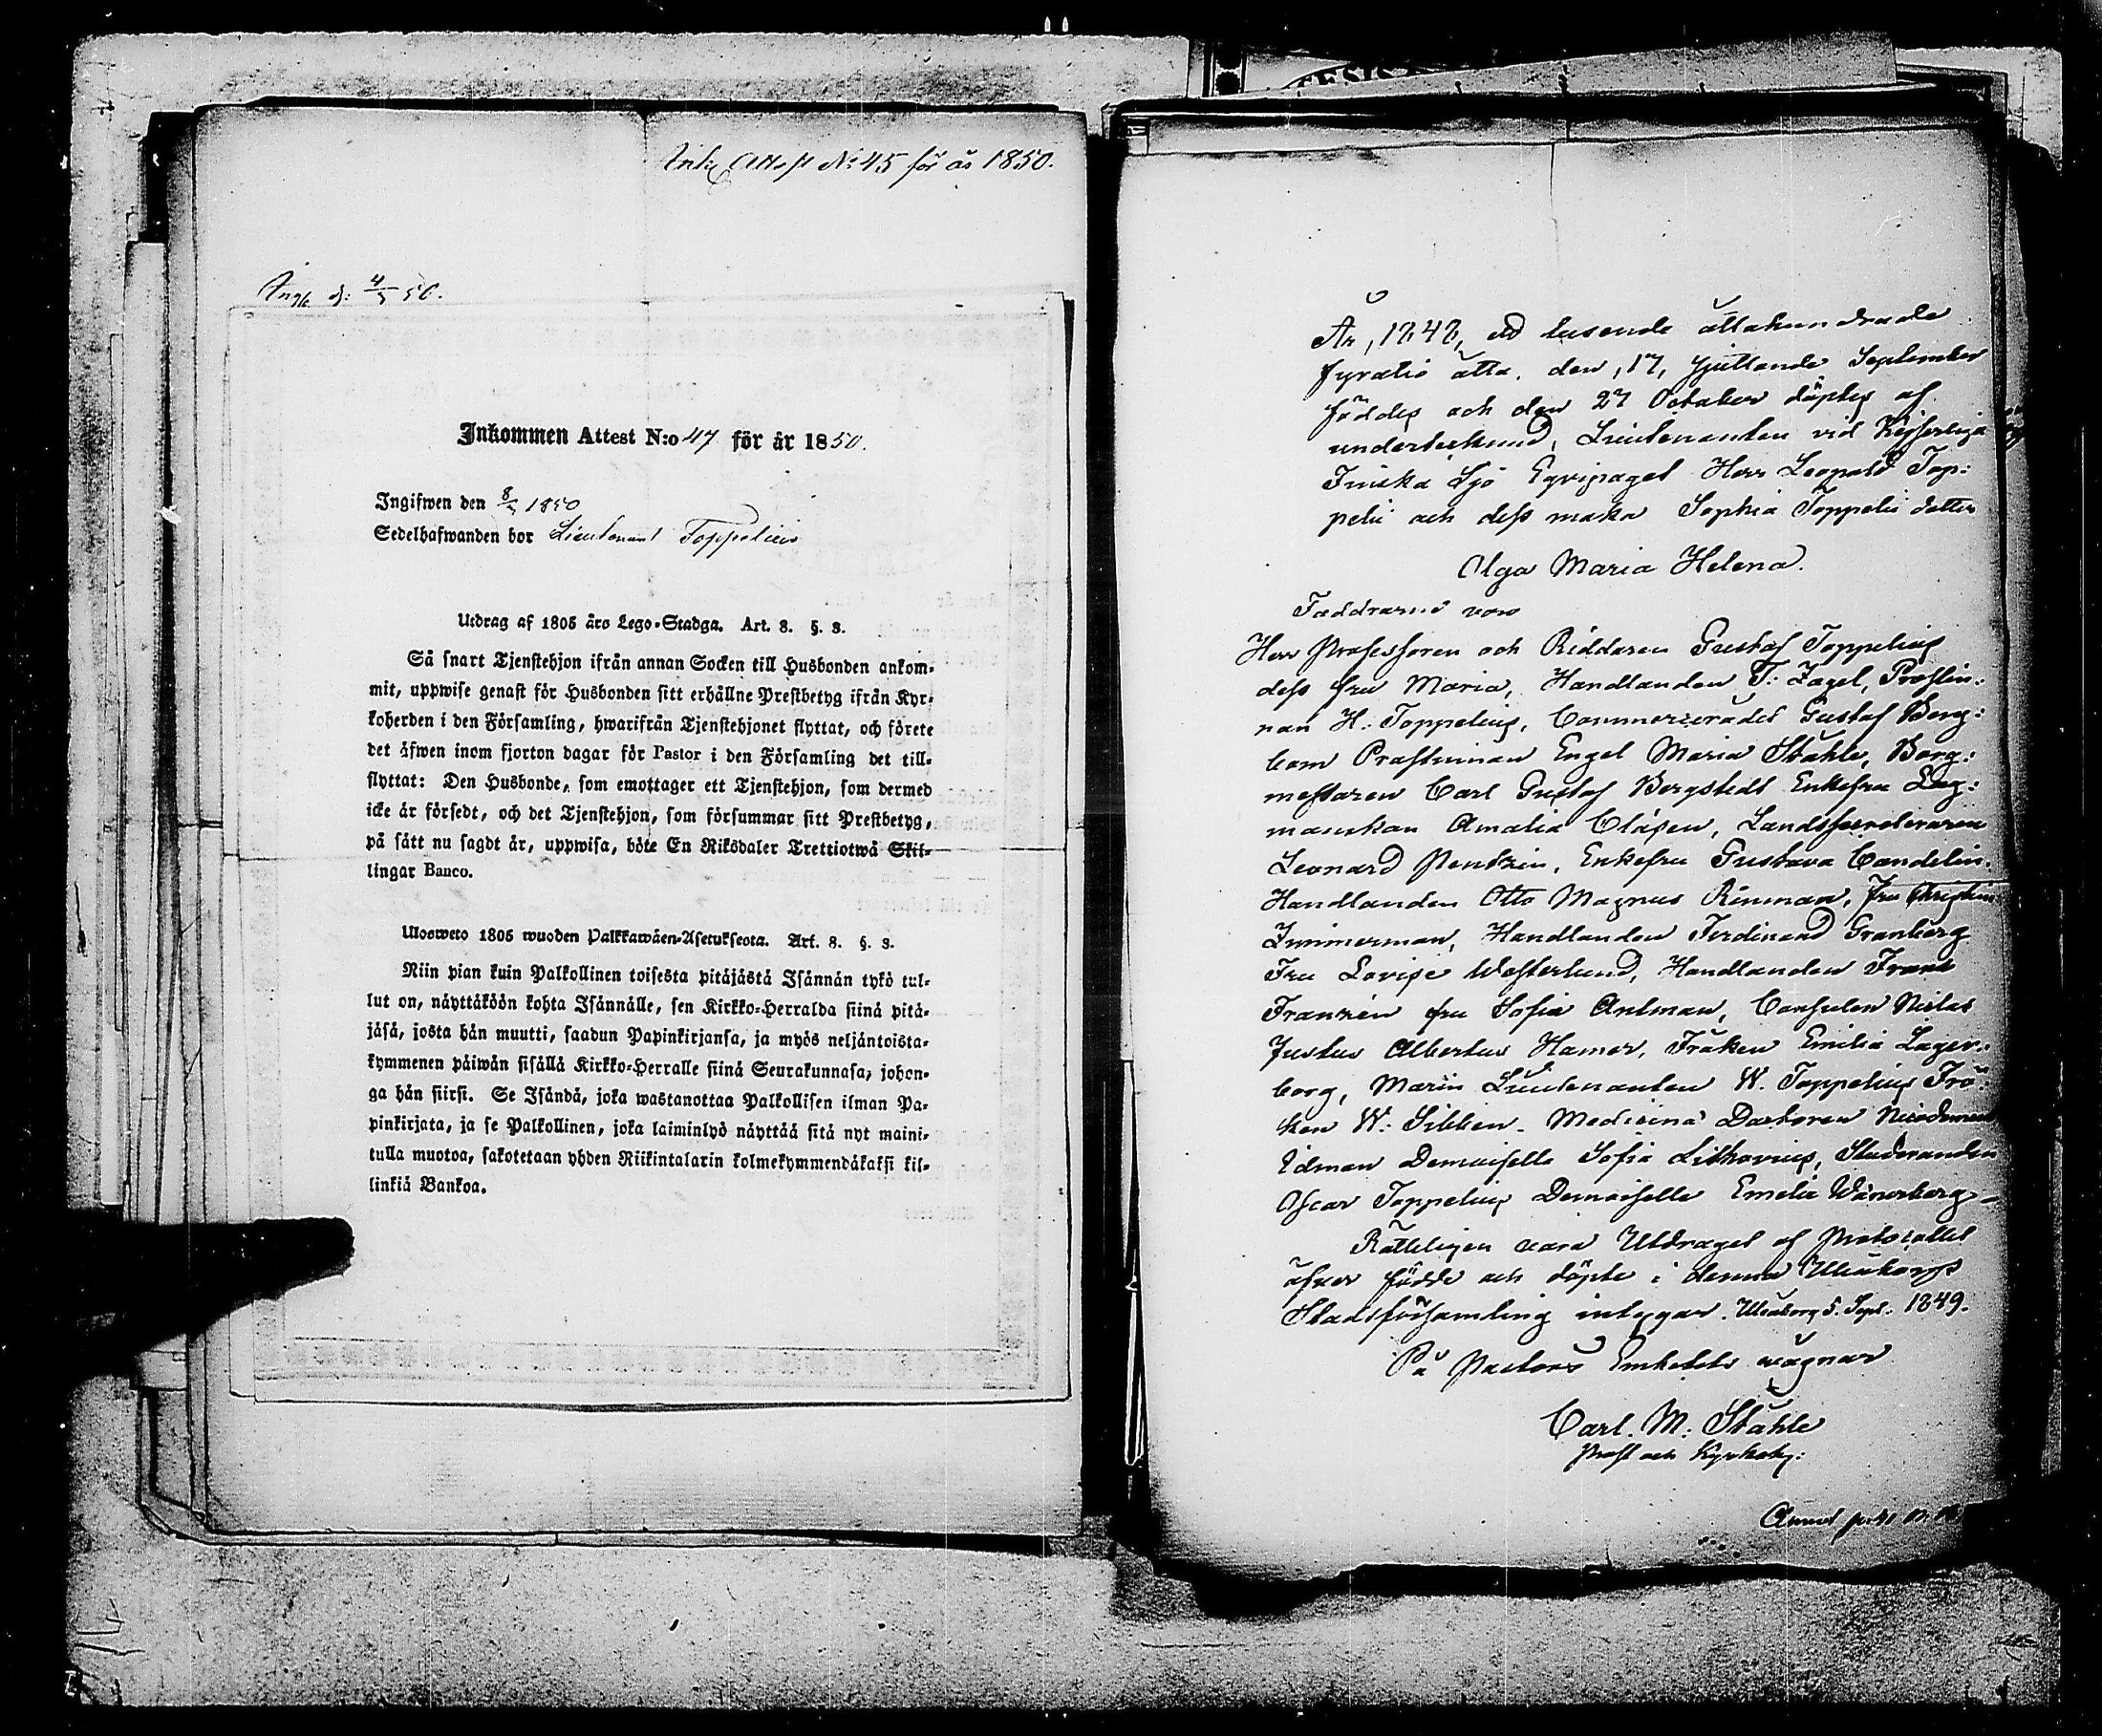 Attest No 45 för år 1850.
Ingk. d: 4/5 50.
Inkommen Attest N:o 47 för år 1850.
Ingifwen den 8/5 1850
Sedelhafwanden bor Lieutenant Toppelius
Utdrag af 1805 års Lego-Stadga. Art. 8. §. 3.
Så snart Tjenstehjon ifrån annan Socken till Husbonden ankom-
mit, uppwise genast för Husbonden sitt erhållne Prestbetyg ifrån Kyr-
koherden i den Församling, hwarifrån Tjenstehjonet flyttat, och förete
det äfwen inom fjorton dagar för Pastor i den Församling det till-
flyttat: Den Husbonde, som emottager ett Tjenstehjon, som dermed
icke är försedt, och det Tjenstehjon, som försummar sitt Prestbetyg,
på sätt nu sagdt är, uppwisa, böte En Riksdaler Trettiotwå Skil-
lingar Banco.
Ulosweto 1805 wuoden Palkkawäen-Asetuksesta. Art. 8. §. 3.
Niin pian kuin Palkollinen toisesta pitäjästä Isännän tykö tul-
lut on, näyttäköön kohta Isännälle, sen Kirkko-Herralda siinä pitä-
jäsä, josta hän muutti, saadun Papinkirjansa, ja myös neljäntoista-
kymmenen päiwän sisällä Kirkko-Herralle siinä Seurakunnasa, johon-
ga hän siirsi. Se Isändä, joka wastanottaa Palkollisen ilman Pa-
pinkirjata, ja se Palkollinen, joka laiminlyö näyttää sitä nyt maini-
tulla muotoa, sakotetaan yhden Riikintalarin kolmekymmendäkaksi kil-
linkiä Bankoa.
År, 1848, ett tusende åttahundrade
fyratio åtta, den, 17, sjuttande September
föddes och den 27 October döptes af
undertecknad, Lieutenanten vid Kejserliga
Finska Sjö Eqvipaget Herr Leopold Top:
pelii och dess maka Sophia Toppelii dotter
Olga Maria Helena.
Faddrarne voro
Herr Professoren och Riddaren Gustaf Toppelius
dess fru Maria, Handlanden F: Zagel, Prostin:
nan H. Toppelius, Commercerådet Gustaf Berg:
bom Prostinnan Engel Maria Ståhle, Borg:
mestaren Carl Gustaf Bergstedt Enkefru Lag:
manskan Amalia Clásen, Landssecreteraren
Leonard Pentzin, Enkefru Gustava Candelin.
Handlanden Otto Magnus Rinman, fru Christin
Zimmerman, Handlanden Ferdinand Granberg
Fru Lovise Westerlund, Handlanden Frans
Franzén fru Sofia Antman, Consulen Niclas
Justus Albertus Hamer, Fröken Emilia Lager:
borg, Marin Lieutenanten W. Toppelius Frö:
ken W: Sibben. Medicinæ Doctoren
Idman Demoiselle Sofia Lithovius, Studeranden
Oscar Toppelius Demoiselle Emelia Wänerberg
Rätteligen vara Utdraget af Protocollet
öfver födde och döpte i denna Uleåborgs
Stadsförsamling intygar. Uleåborg 5. Sept. 1849.
På Pastors Embetets vägnar
Carl. M: Ståhle
Prost och Kyrkoh: